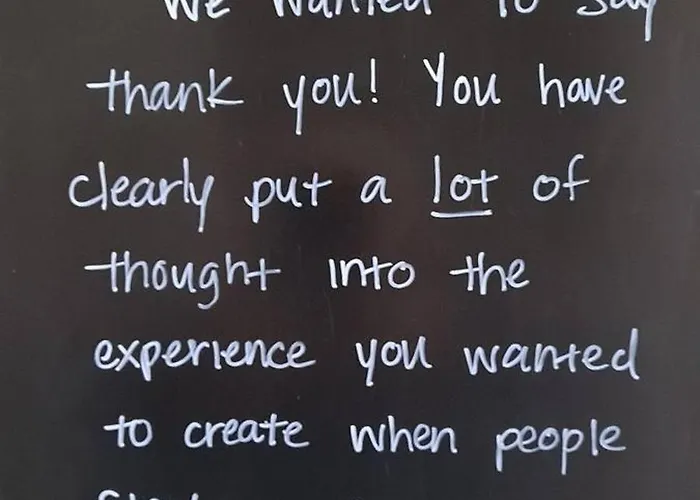 We wanted to say
thank you! You have
clearly put a lot of
thought into the
experience you wanted
to create when people